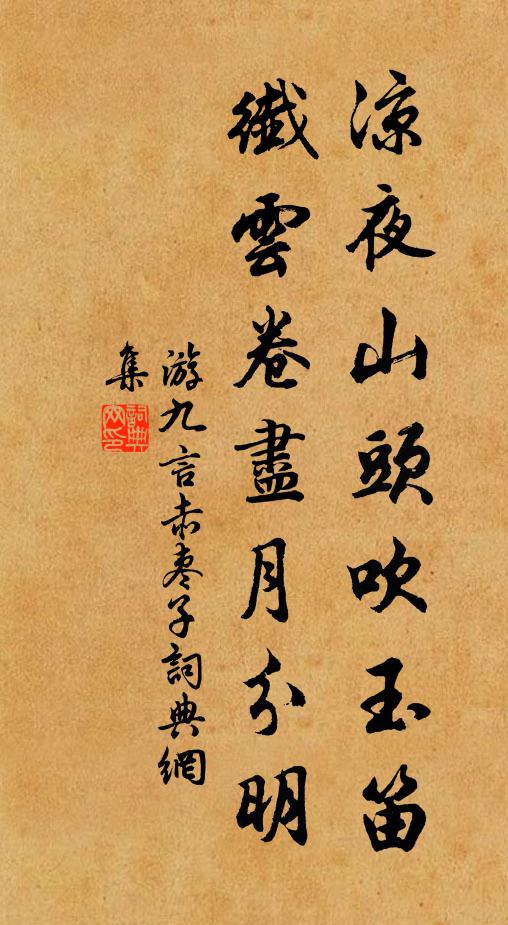 凉夜山頭吹玉笛
纖雲卷盡月分明
游九言赤枣子詞典網
集
詞典
网印